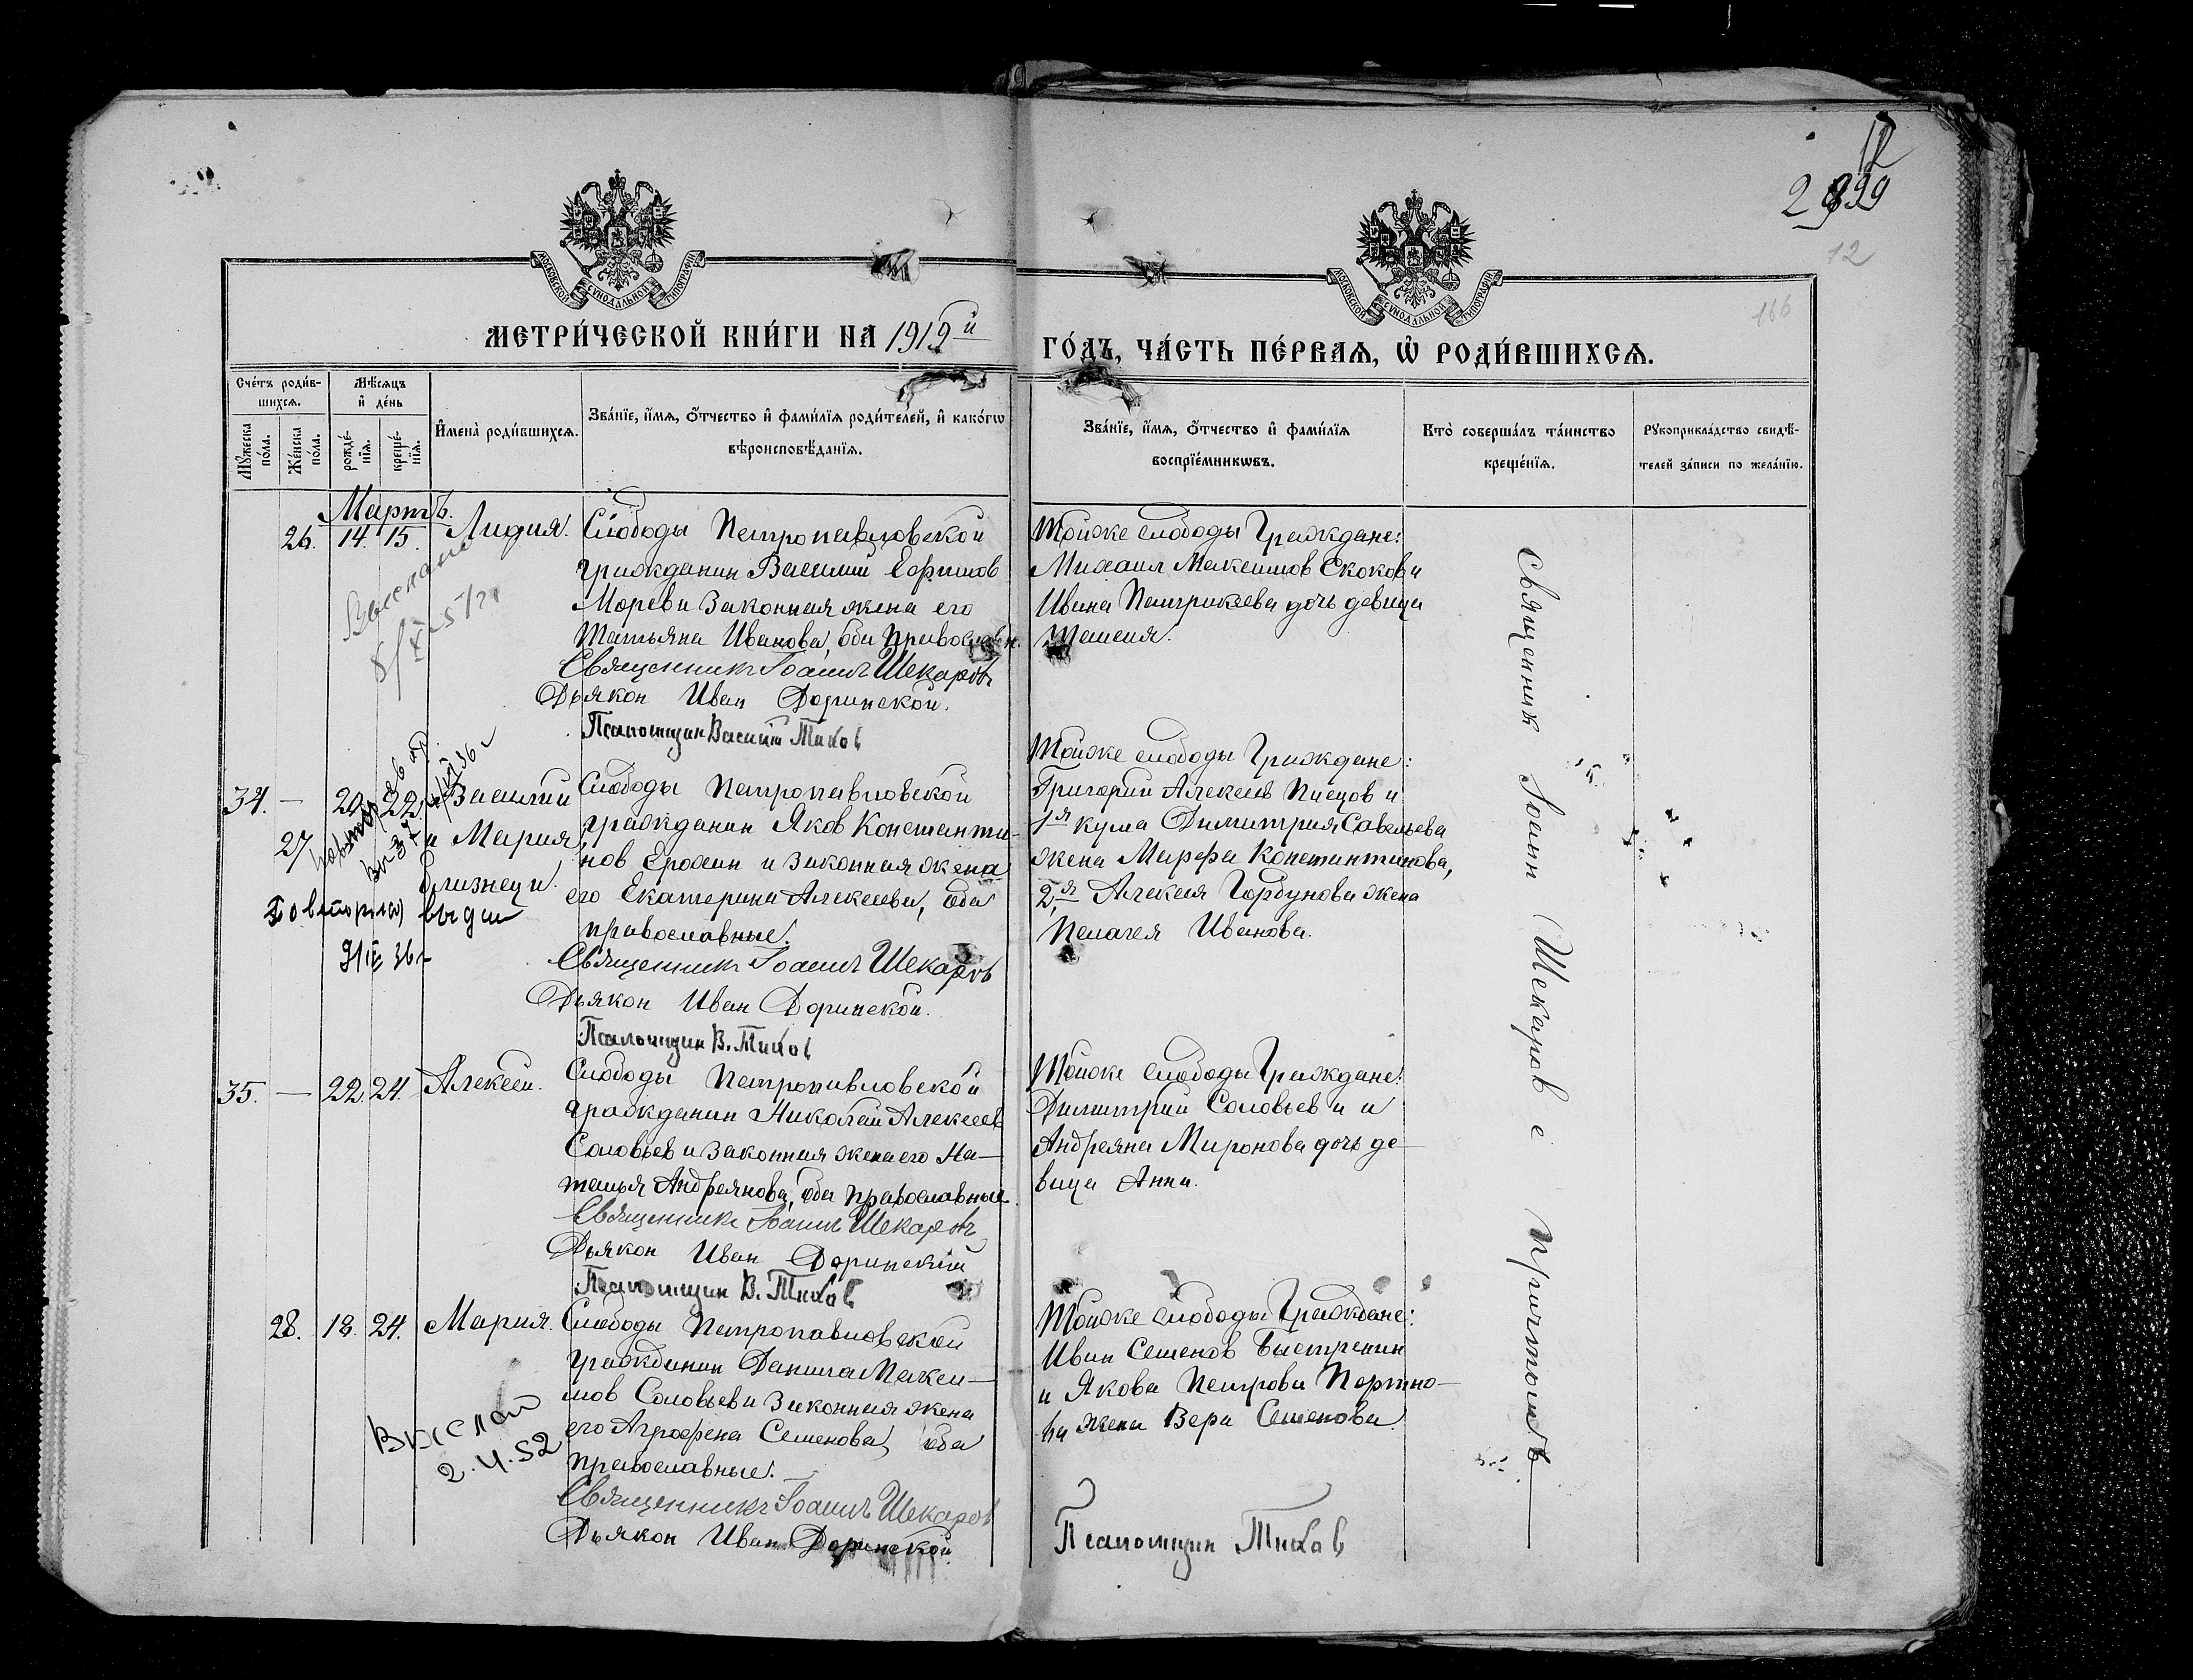 12
2899
12
166
МОСКОВСКОЙ СѴНОДАЛЬНОЙ ТИПОГРАФІИ
МОСКОВСКОЙ СѴНОДАЛЬНОЙ ТИПОГРАФІИ
МЕТРИ́ЧЕСКОЙ КНИ́ГИ НА 1919й
ГО́ДЪ, ЧА́СТЬ ПЕ́РВАѦ, Ѡ҆ РОДИ́ВШИХСѦ.
Сче́тъ роди́в-
шихсѧ.
Мꙋ́жеска по́ла.
Же́нска по́ла.
Мѣ́сѧцъ
и҆ де́нь
рожде́-
нїѧ.
креще́-
нїѧ.
И҆мена̀ роди́вшихсѧ.
Зва́нїе, и҆́мѧ, ѻ҆́тчество и҆ фами́лїѧ роди́телей, и҆ како́гѡ
вѣроисповѣ́данїѧ.
Зва́нїе, и҆́мѧ, ѻ҆́тчество и҆ фами́лїѧ
воспрїе́мникѡвъ.
Кто̀ соверша́лъ та́инство
креще́нїѧ.
Рꙋкоприкла́дство свидѣ́-
телей за́писи по жела́нїю.
Мартъ.
26. 14. 15. Лидия.
Слободы Петропавловской
гражданин Василий Ефимов
Морев и законная жена его
Татьяна Иванова, оба православн.
Священникъ Іоаннъ Шекаровъ
Дьякон Иван Доринской.
Псаломщик Василий Тихов
Тойже слободы Граждане:
Михаил Максимов Скоков и
Ивана Патрикеева дочь девица
Таисия.
34. — 20. 22. Василий
27 и Мария
близнецы.
Повторно выдан
9/III 36 г
Слободы Петропавловской
гражданин Яков Константи-
нов Ерохин и законная жена
его Екатерина Алексеева, оба
православные.
Священникъ Іоаннъ Шекаровъ
Дьякон Иван Доринской.
Псаломщик В. Тихов
Тойже слободы Граждане:
Григорий Алексеев Писцов и
1я кума Димитрия Савельева
жена Марфа Константинова,
2я Алексея Горбунова жена
Пелагея Иванова.
35. — 22. 24. Алексей.
Слободы Петропавловской
гражданин Николай Алексеев
Соловьев и законная жена его На-
талья Андреянова, оба православные.
Священникъ Іоаннъ Шекаровъ
Дьякон Иван Доринский
Псаломщик В. Тихов
Тойже слободы Граждане:
Димитрий Соловьев и и
Андреяна Миронова дочь де-
вица Анна.
28. 18. 24. Мария.
Выслан
2.4.52
Слободы Петропавловской
гражданин Данила Макси-
мов Соловьев и законная жена
его Агрофена Семенова, оба
православные.
Священникъ Іоаннъ Шекаровъ
Дьякон Иван Доринской
Тойже слободы Граждане:
Иван Семенов Быстренин
и Якова Петрова Портно-
ва жена Вера Семенова
Псаломщик Тихов
Священник Іоанн Шекаров с причтомъ